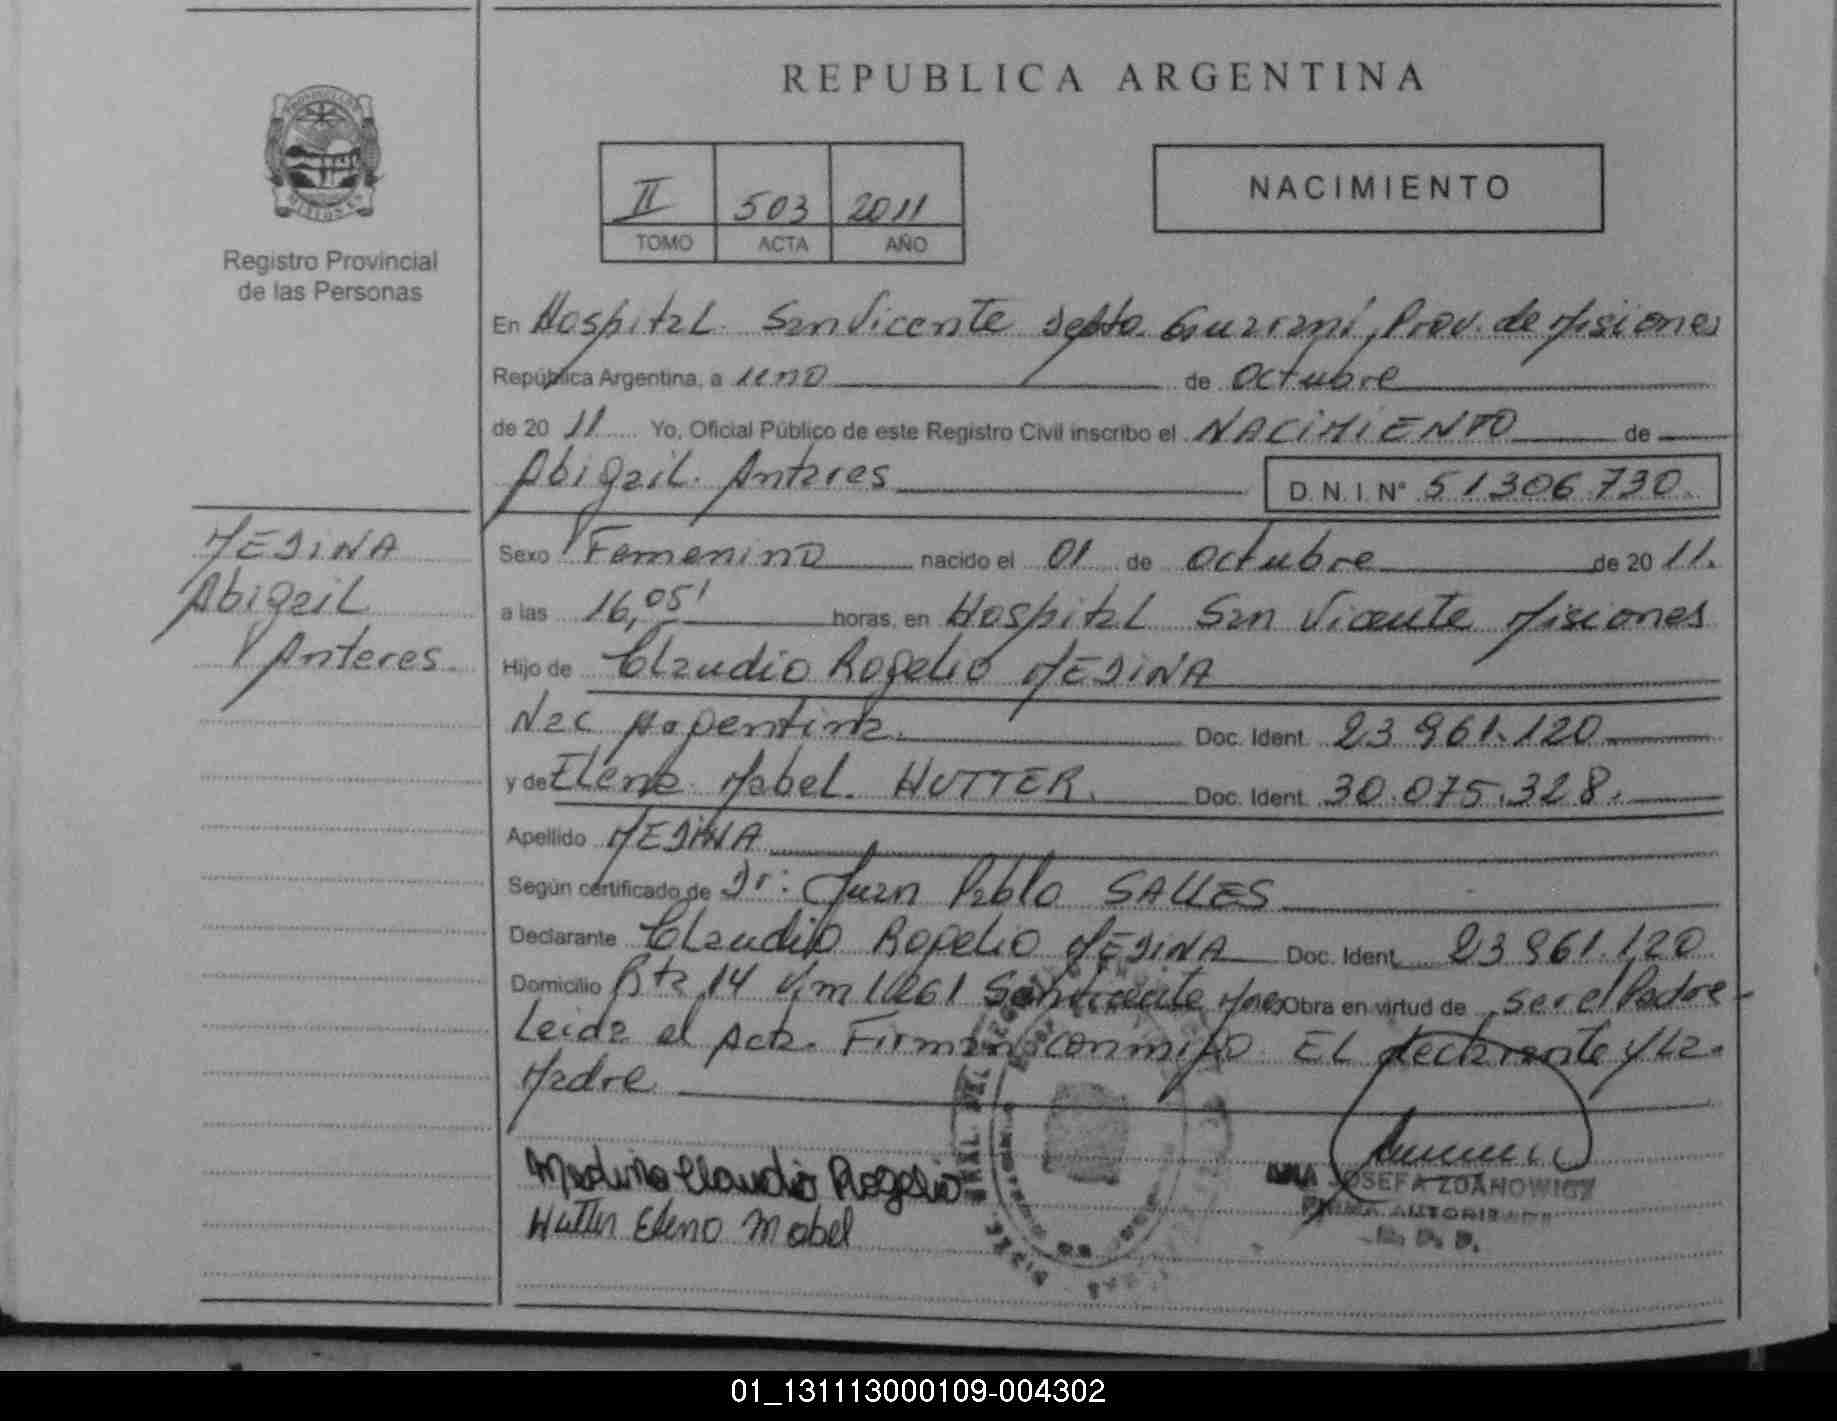 REPUBLICA ARGENTINA
II 503 2011
TOMO ACTA AÑO
NACIMIENTO
Registro Provincial
de las Personas
En Hospital San Vicente Depto Guaraní, Prov. de Misiones
República Argentina, a uno de Octubre
de 20 11 Yo, Oficial Público de este Registro Civil inscribo el NACIMIENTO de
Abigail Antares D.N.I. N° 51306.730
MEDINA
Abigail
Anteres
Sexo Femenino nacido el 01 de Octubre de 20 11.
a las 16,05' horas, en Hospital San Vicente Misiones
Hijo de Claudio Rogelio MEDINA
Nac Argentina. Doc. Ident. 23 961.120
y de Elena Mabel. HUTTER. Doc. Ident. 30.075.328.
Apellido MEDINA
Según certificado de Dr: Juan Pablo SALLES
Declarante Claudio Rogelio MEDINA Doc. Ident. 23 961.120
Domicilio Rta 14 Km 1261 San Vicente Mnes Obra en virtud de ser el Padre
Leida el Acta. Firman conmigo El declarante y La
Madre
Medina Claudio Rogelio
Hutter Elena Mabel
ANA JOSEFA ZDANOWICZ
FIRMA AUTORIZADA
R. P. P.
01_131113000109-004302